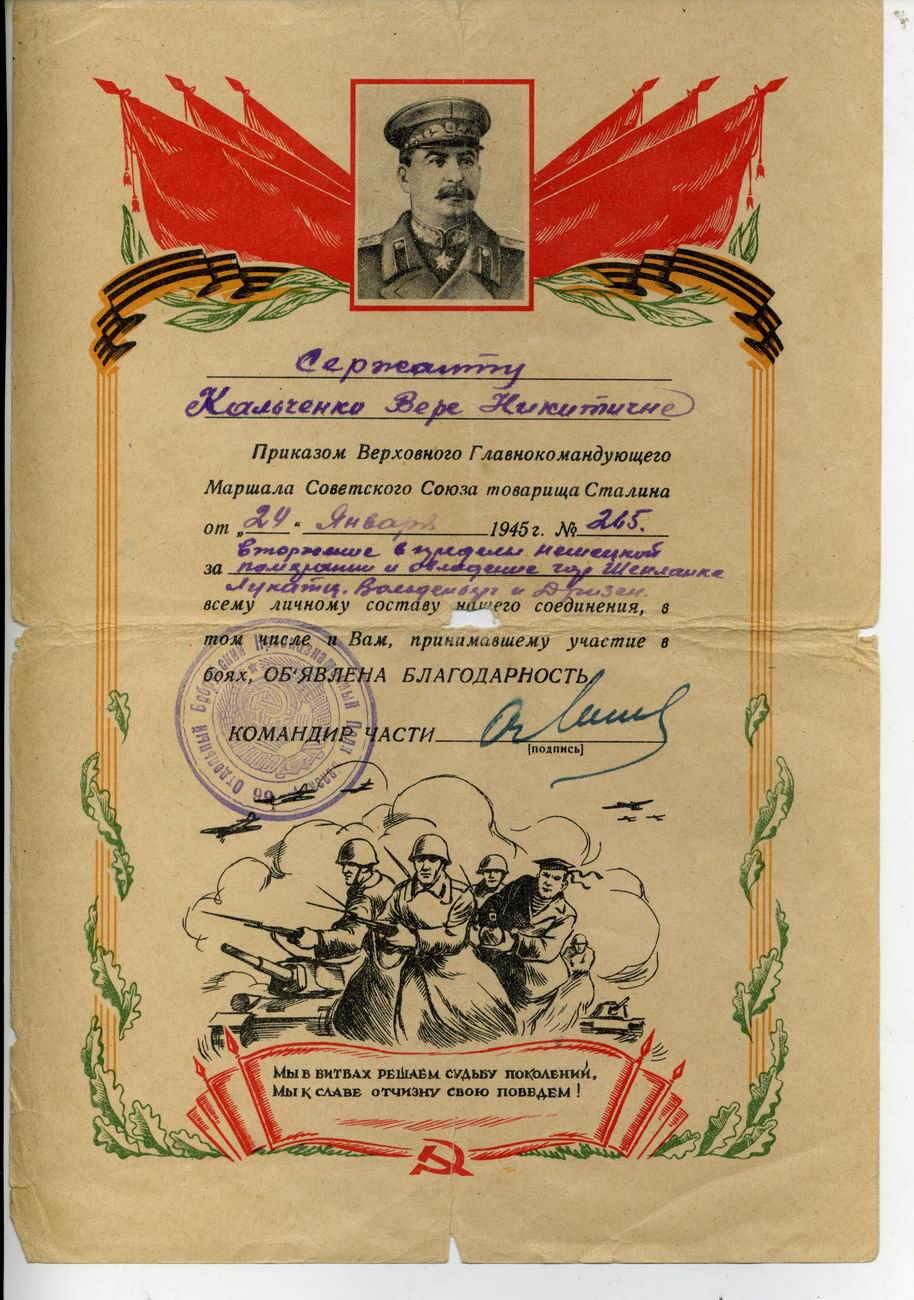 Сержанту
Кальченко Вере Никитичне
Приказом Верховного Главнокомандующего
Маршала Советского Союза товарища Сталина
от „29“ Января 1945 г. № 265.
вторжение в пределы немецкой
за померании и овладение гор Шенланке
Лукатц. Вольденберг и Дризен.
всему личному составу нашего соединения, в
том числе и Вам, принимавшему участие в
боях, ОБ'ЯВЛЕНА БЛАГОДАРНОСТЬ
КОМАНДИР ЧАСТИ
[подпись]
66 Отдельный Бобруйский Краснознаменный Полк Связи
МЫ В БИТВАХ РЕШАЕМ СУДЬБУ ПОКОЛЕНИЙ,
МЫ К СЛАВЕ ОТЧИЗНУ СВОЮ ПОВЕДЕМ!